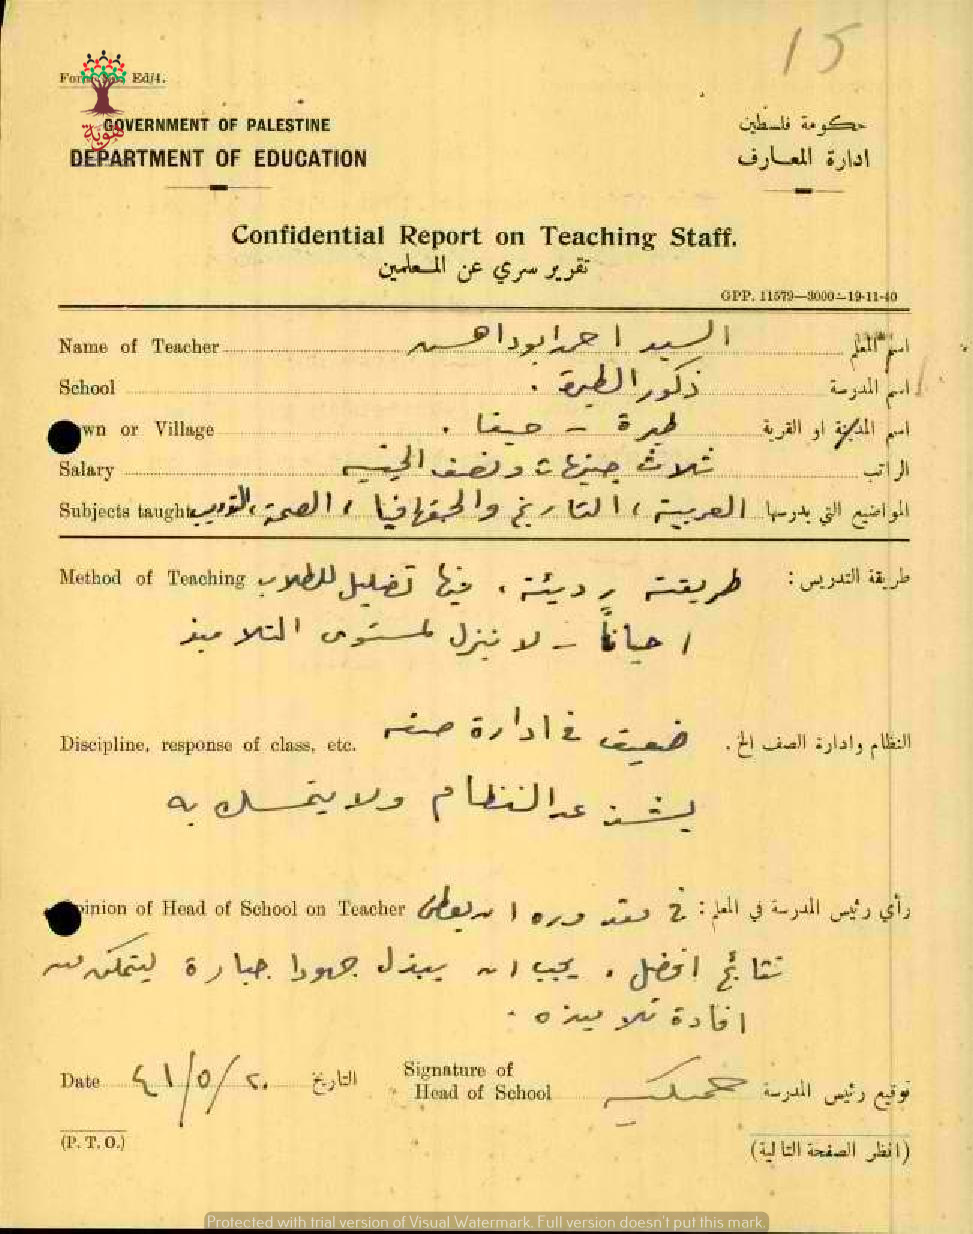 15
Form Ed/4.
هوية
GOVERNMENT OF PALESTINE
حكومة فلسطين
DEPARTMENT OF EDUCATION
ادارة المعارف
Confidential Report on Teaching Staff.
تقرير سري عن المعلمين
GPP. 11579—3000—19-11-40
Name of Teacher السيد احمد ابو اسم المعلم
School ذكور الطيرة . اسم المدرسة
wn or Village طيرة - حيفا . اسم المدينة او القرية
Salary ثلاث جنيهات ونصف الجنيه الراتب
Subjects taught العربية، التاريخ والجغرافيا، الصحة، المواضيع التي يدرسها
Method of Teaching طريقة التدريس : طريقته رديئة . فيها تضليل للطلاب
احياناً - لا ينزل لمستوى التلاميذ
Discipline, response of class, etc. النظام وادارة الصف الخ . ضعيف في ادارة صفه
يشذ عن النظام ولا يتمسك به
pinion of Head of School on Teacher رأي رئيس المدرسة في المعلم : في مقدوره ان يعطي
نتائج افضل . يجب ان يبذل جهودا جبارة ليتمكن من
افادة تلاميذه .
Date ٢٠/٥/٤١ التاريخ
Signature of Head of School توقيع رئيس المدرسة
(P. T. O.)
(انظر الصفحة التالية)
Protected with trial version of Visual Watermark. Full version doesn't put this mark.